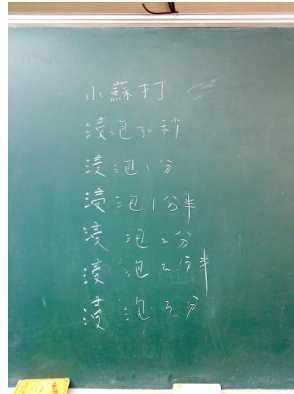 小蘇打
浸泡30秒
浸泡1分
浸泡1分半
浸泡2分
浸泡2分半
浸泡3分